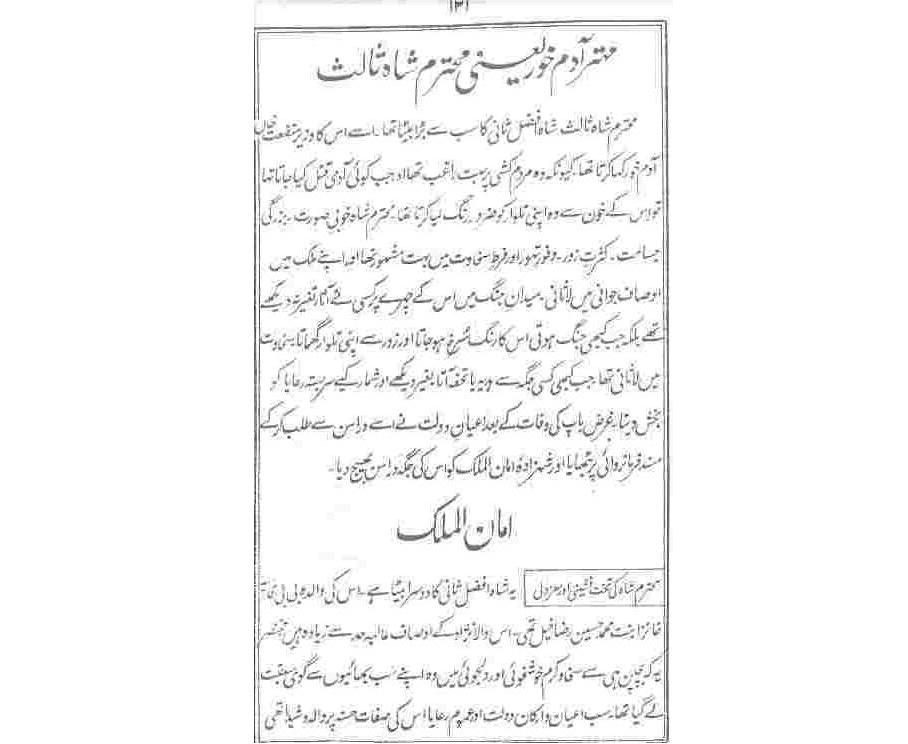 ۱۳۱
مہتر آدم خور یعنی محترم شاہ ثالث
محترم شاہ ثالث شاہ افضل ثانی کا سب سے بڑا بیٹا تھا۔ اسے اس کا وزیر منفعت خان
آدم خور کہا کرتا تھا۔ کیونکہ وہ مردم کشی پر بہت راغب تھا اور جب کوئی آدمی قتل کیا جاتا تھا
تو اس کے خون سے وہ اپنی تلوار کو ضرور رنگ لیا کرتا تھا۔ محترم شاہ خوبی صورت۔ بزرگی
جسامت۔ کثرت زور۔ وفور تہور اور فرط سخاوت میں بہت مشہور تھا اور اپنے ملک میں
اوصاف جوانی میں لاثانی۔ میدان جنگ میں اس کے چہرے پر کسی نے آثار تغیر نہ دیکھے
تھے بلکہ جب کبھی جنگ ہوتی اس کا رنگ سرخ ہو جاتا اور زور سے اپنی تلوار گھماتا۔ سخاوت
میں لاثانی تھا جب کبھی کسی جگہ سے ہدیہ یا تحفہ آتا بغیر دیکھے اور شمار کیے سربستہ رعایا کو
بخش دیتا۔ غرض باپ کی وفات کے بعد اعیان دولت نے اسے دراسن سے طلب کر کے
مسند فرمانروائی پر بٹھایا اور شہزادہ امان الملک کو اس کی جگہ دراسن بھیج دیا۔
امان الملک
محترم شاہ کی تخت نشینی اور معزولی یہ شاہ افضل ثانی کا دوسرا بیٹا ہے۔ اس کی والدہ بی بی
بنت محمد حسین رضا خیل تھی۔ اس والا نژاد کے اوصاف عالیہ حد سے زیادہ ہیں مختصر
یہ کہ بچپن ہی سے سخا و کرم خوشخوئی اور دلجوئی میں وہ اپنے سب بھائیوں سے گوی سبقت
لے گیا تھا۔ سب اعیان و ارکان دولت اور عموم رعایا اس کی صفات حسنہ پر والہ و شیدا تھی